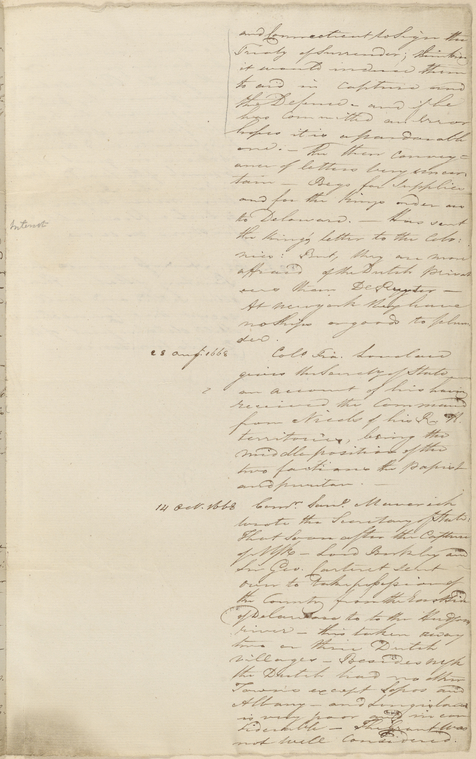 and Connecticut to sign the
Treaty of Surrender; thinking
it would induce them
to aid in capture and
the Defence and if he
has committed an error
hopes it is a pardonable
one. — The then convey-
ance of letters very uncer-
tain — Begs for Supplies
and for the Kings order as
to Delaware. — Has sent
the King's letter to the Colo-
nies: But, they are more
afraid of the Dutch Privat
eers than De Ruyter —
At New york they have
no ships or goods to plun
der.
Interest
28 Augt. 1668 Colo. Fra. Lovelace
gives the Secrety of State
an account of his having
received the Command
from Nicols of his R. H.
territories, being the
middle position of the
two factions the Papist
and puritan. —
14 Oct. 1668 Saml. Maverick
wrote the Secretary of State
That soon after the Capture
of NYk — Lord Berkley and
Sir Geo. Carteret sent
over to take possession of
the Country from the East side
of Delaware to the Hudson
river — this taken away
two or three Dutch
villages — Besides NYk
the Dutch had no other
Towns except Sopos and
Albany — and Long island
is very poor and incon
siderable — The grant was
not well considered.